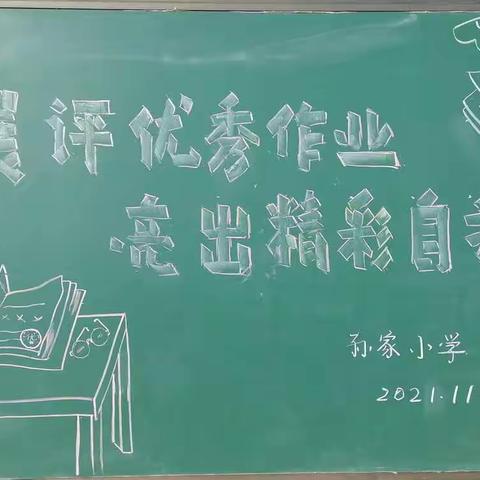 评优秀作业
亮出精彩自
孙家小学
2021.11